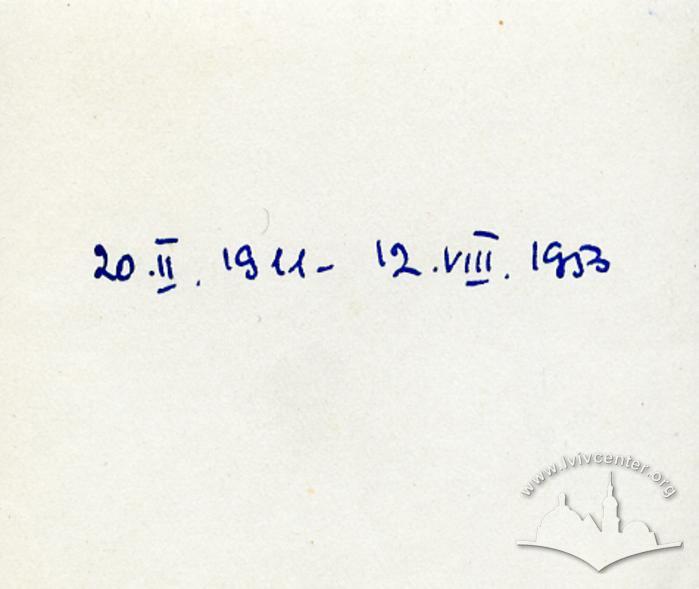 20.II. 1911- 12.VIII. 1953
www.lvivcenter.org